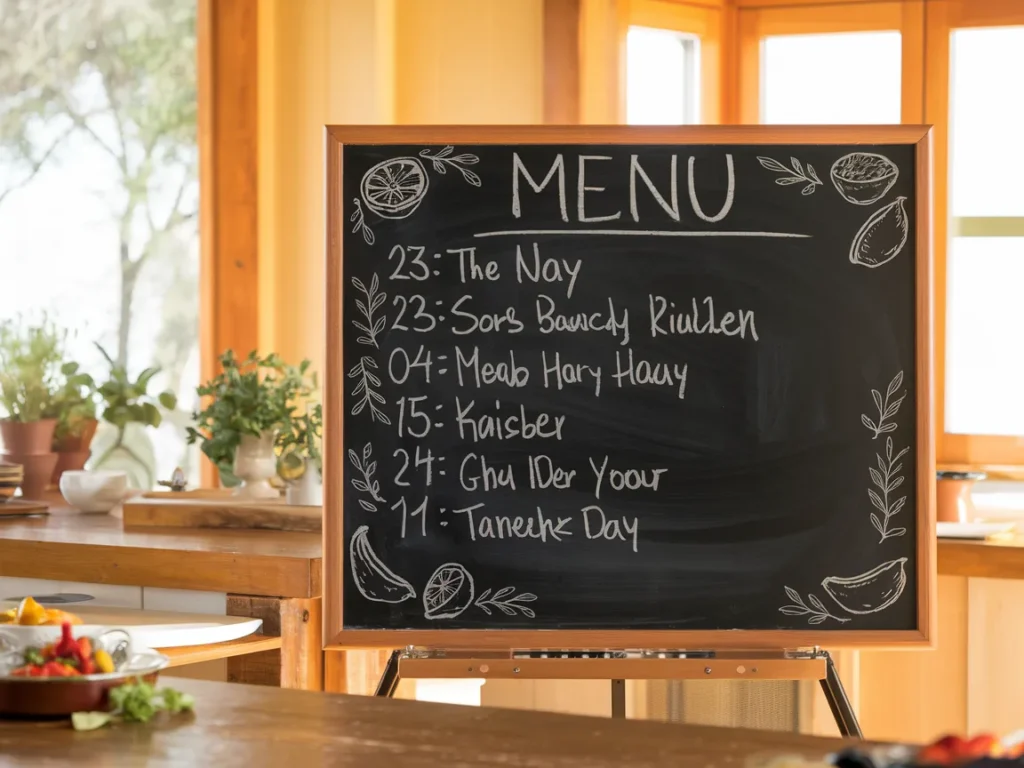 MENU
23: The Nay
23: Sors Baucdy
04: Meab Hary Hauy
15: Kaisber
24: Ghu IDer Your
11: Tanechk Day